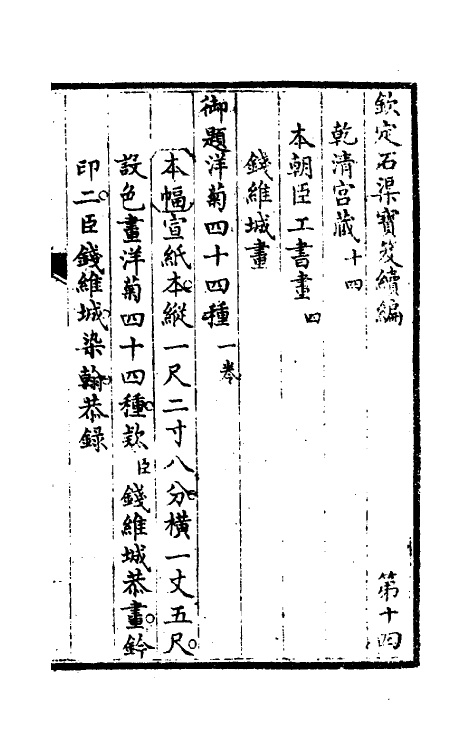 欽定石渠寶笈續編 第十四
乾清宮藏 十四
本朝臣工書畫 四
錢維城畫
御題洋菊四十四種 一卷
本幅宣紙本縱一尺二寸八分橫一丈五尺
設色畫洋菊四十四種款臣錢維城恭畫鈐
印二臣錢維城染翰恭錄